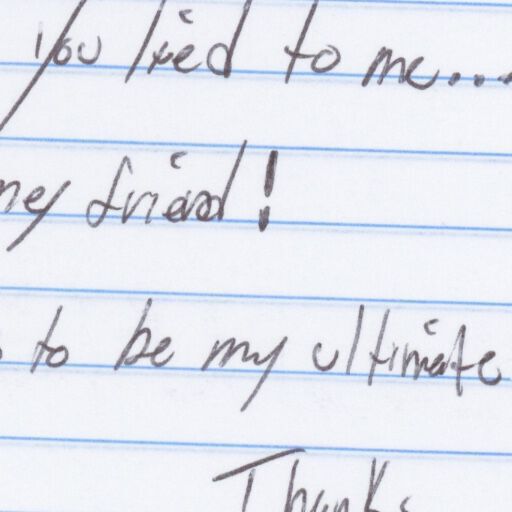 you lied to me...
my friend!
to be my ultimate
Thanks